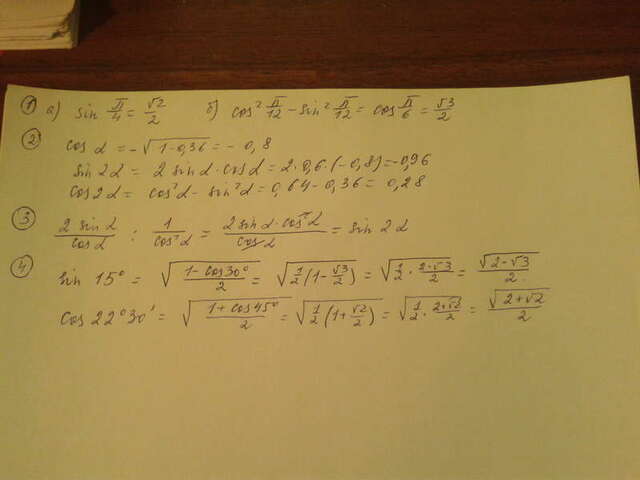 ① а) sin π/4 = √2/2 б) cos² π/12 - sin² π/12 = cos π/6 = √3/2
② cos α = -√(1-0,36) = -0,8
sin 2α = 2 sin α · cos α = 2·0,6·(-0,8) = -0,96
cos 2α = cos²α - sin²α = 0,64 - 0,36 = 0,28
③ 2 sin α / cos α : 1 / cos²α = 2 sin α · cos²α / cos α = sin 2α
④ sin 15° = √((1 - cos 30°)/2) = √(1/2 (1 - √3/2)) = √(1/2 · (2-√3)/2) = √(2-√3)/2
cos 22°30' = √((1 + cos 45°)/2) = √(1/2 (1 + √2/2)) = √(1/2 · (2+√2)/2) = √(2+√2)/2